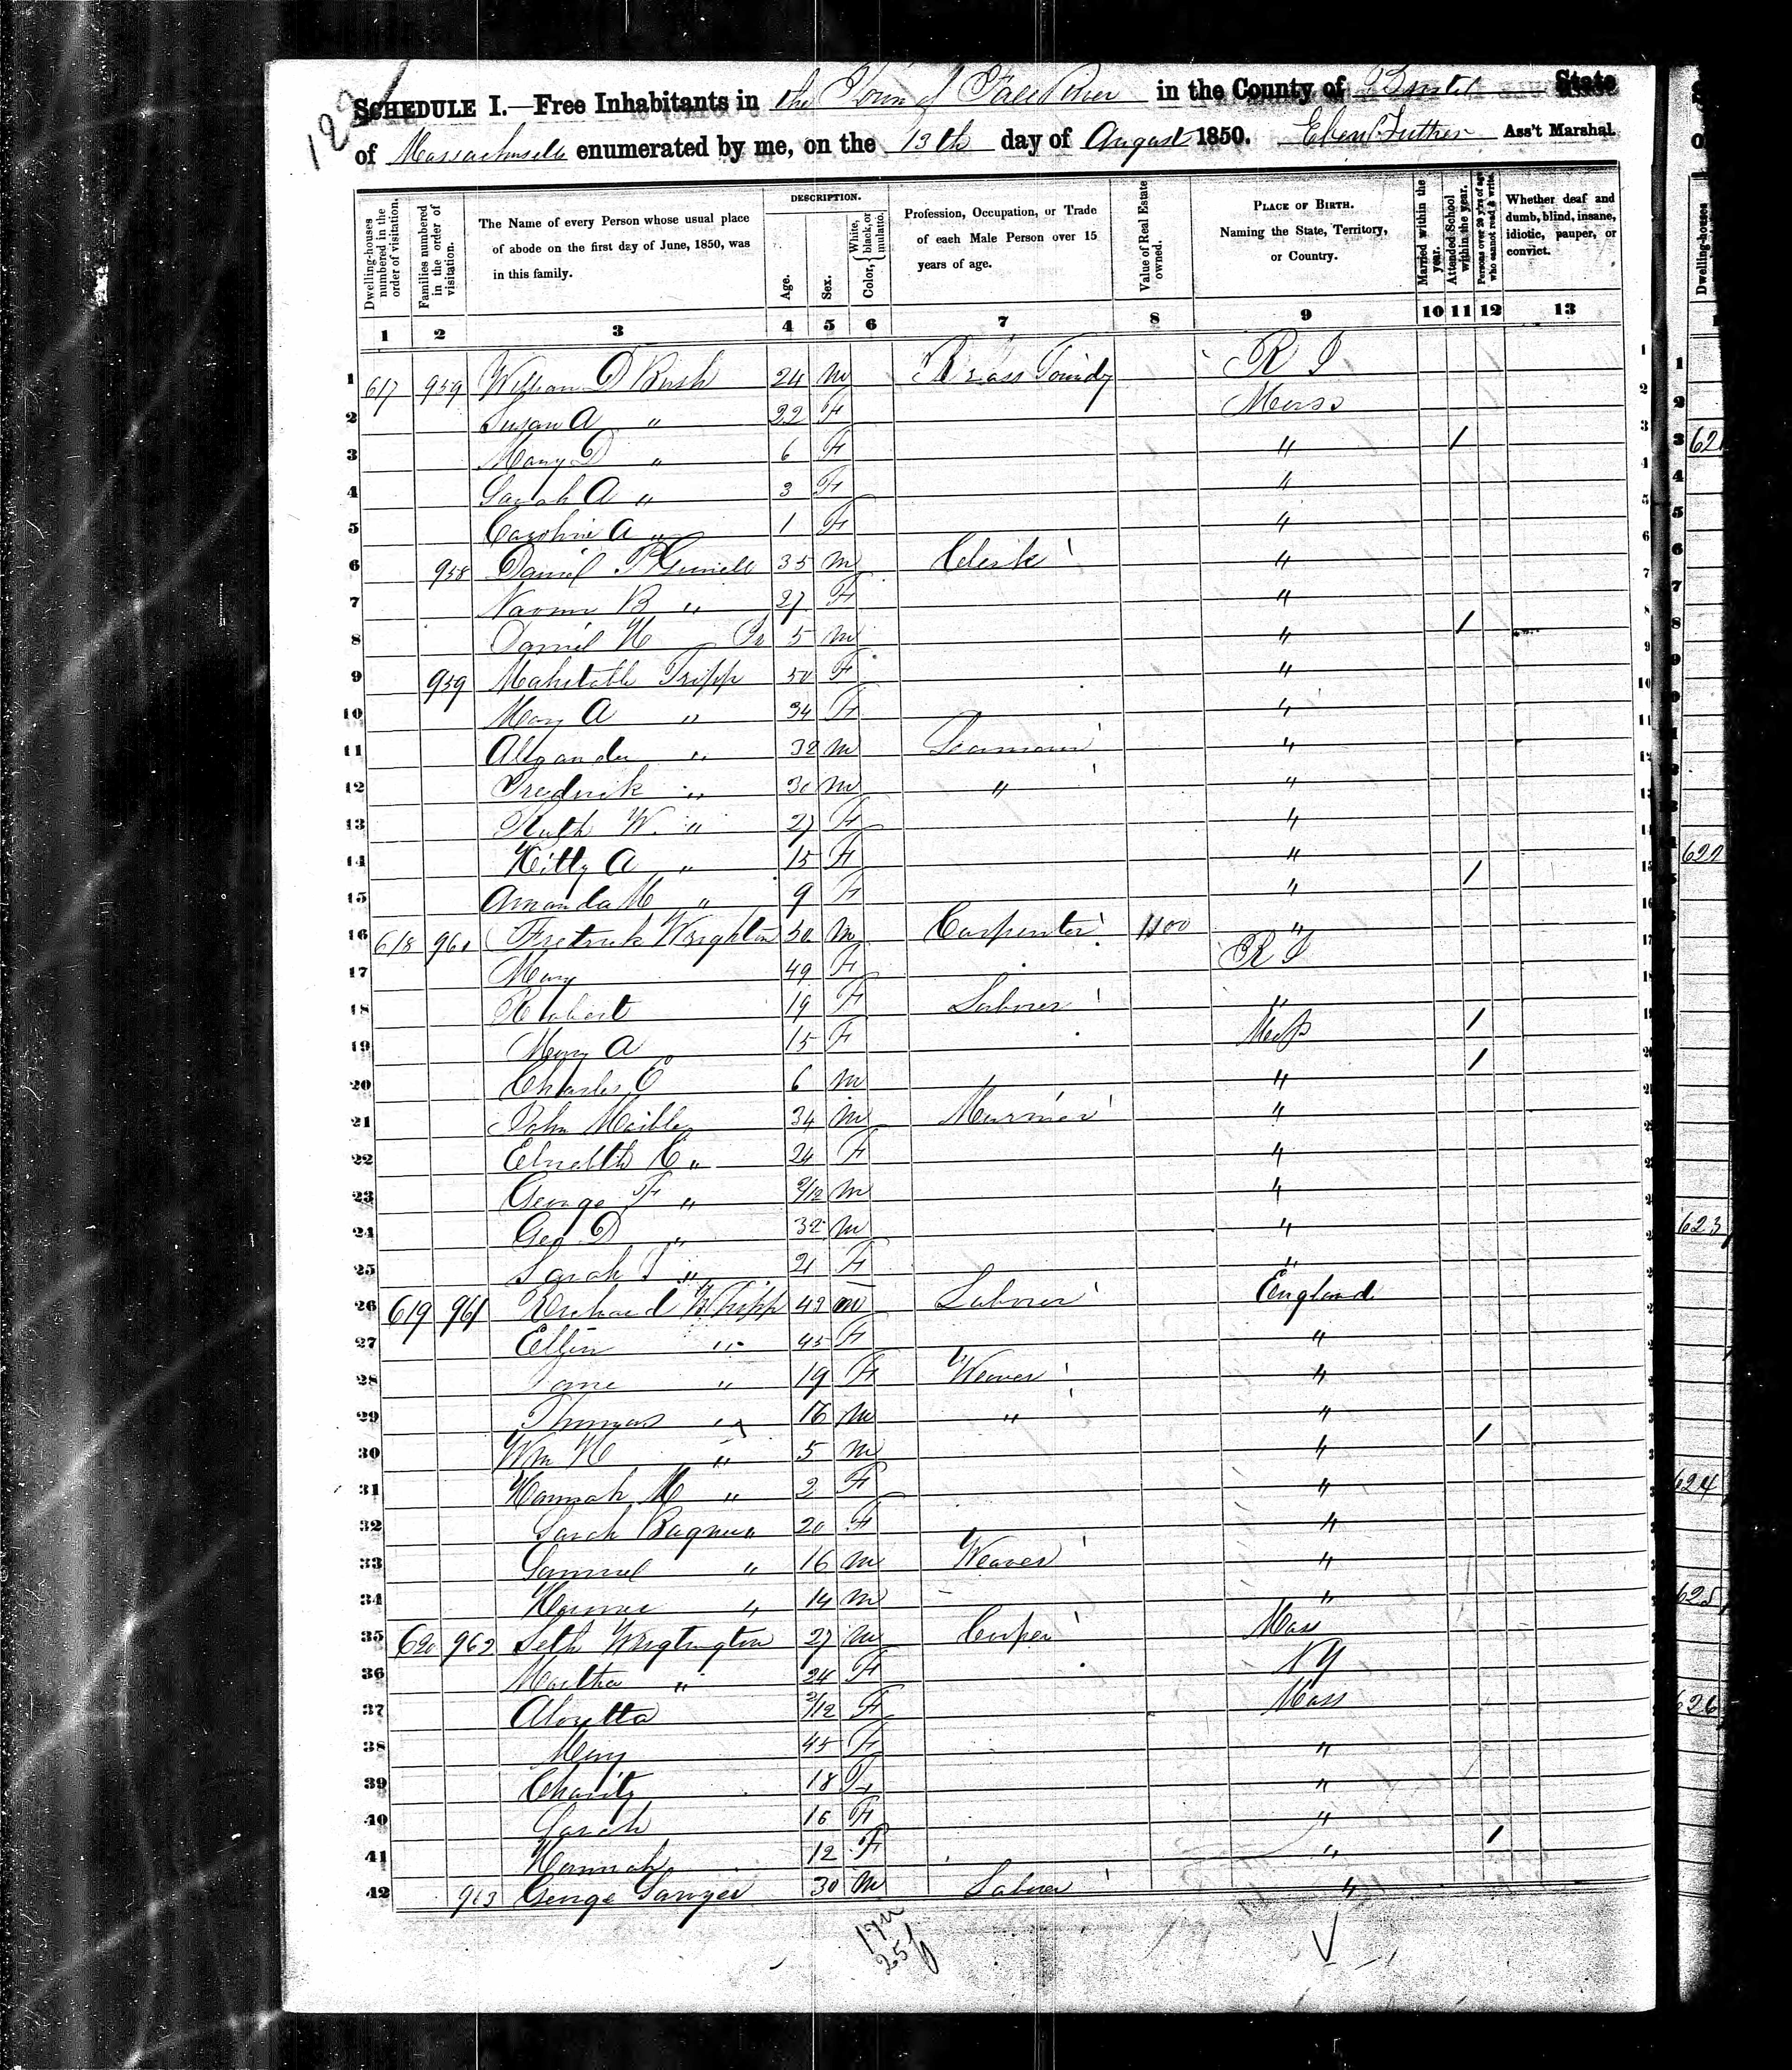 SCHEDULE I.—Free Inhabitants in the Town of Fall River in the County of Bristol State
of Massachusetts enumerated by me, on the 13th day of August 1850. Eben Luther Ass't Marshal.
Dwelling-houses numbered in the order of visitation.
Families numbered in the order of visitation.
The Name of every Person whose usual place of abode on the first day of June, 1850, was in this family.
DESCRIPTION.
Age.
Sex.
Color, White, black, or mulatto.
Profession, Occupation, or Trade of each Male Person over 15 years of age.
Value of Real Estate owned.
PLACE OF BIRTH. Naming the State, Territory, or Country.
Married within the year.
Attended School within the year.
Persons over 20 y'rs of age who cannot read & write.
Whether deaf and dumb, blind, insane, idiotic, pauper, or convict.
1 2 3 4 5 6 7 8 9 10 11 12 13
1 617 959 William D Bush 24 m Brass Foundy R I
2 Susan A " 22 F Mass
3 Mary D " 6 F " /
4 Sarah A " 3 F "
5 Caroline A " 1 F "
6 958 Daniel 35 m Clerk "
7 Naomi B " 27 F "
8 Daniel H Jr 5 m " /
9 959 Mahitable Tripp 50 F "
10 Mary A " 34 F "
11 Alexander " 32 m Seaman "
12 Fredrick " 30 m " "
13 Ruth W. " 27 F "
14 Kitty A " 15 F "
15 Amanda M " 9 F " /
16 618 960 Fretrick Wrightin 50 m Carpenter 1100 "
17 Mary 49 F R I
18 Robert 19 F Laborer "
19 Mary A 15 F Mass /
20 Charles E 6 m " /
21 John 34 m Mariner "
22 C " 24 F "
23 George F " 2/12 m "
24 Geo D " 32 m "
25 Sarah " 21 F "
26 619 961 Richard 43 m Laborer England
27 Ellen " 45 F "
28 Jane " 19 F Weaver "
29 Thomas " 16 m " "
30 Wm H " 5 m " /
31 Hannah M " 2 F "
32 Sarah " 20 F "
33 Samuel " 16 m Weaver "
34 " 14 m "
35 620 962 Seth Wrigtington 27 m Mass
36 Martha " 24 F N Y
37 Aloretta 3/12 F Mass
38 Mary 45 F "
39 Charity 18 F "
40 Sarah 16 F "
41 Hannah 12 F " /
42 963 George Sawyer 30 m Laborer "
17m
25f